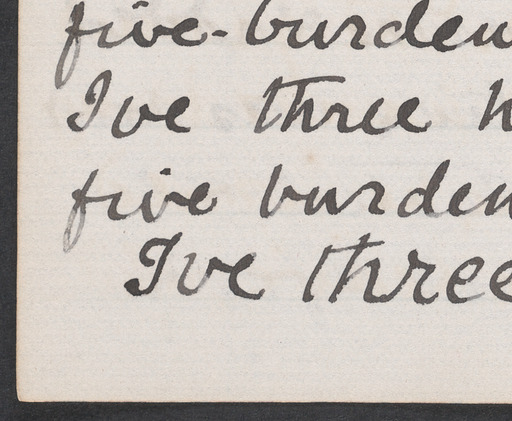 five-burden
Ive three h
five burden
Ive three